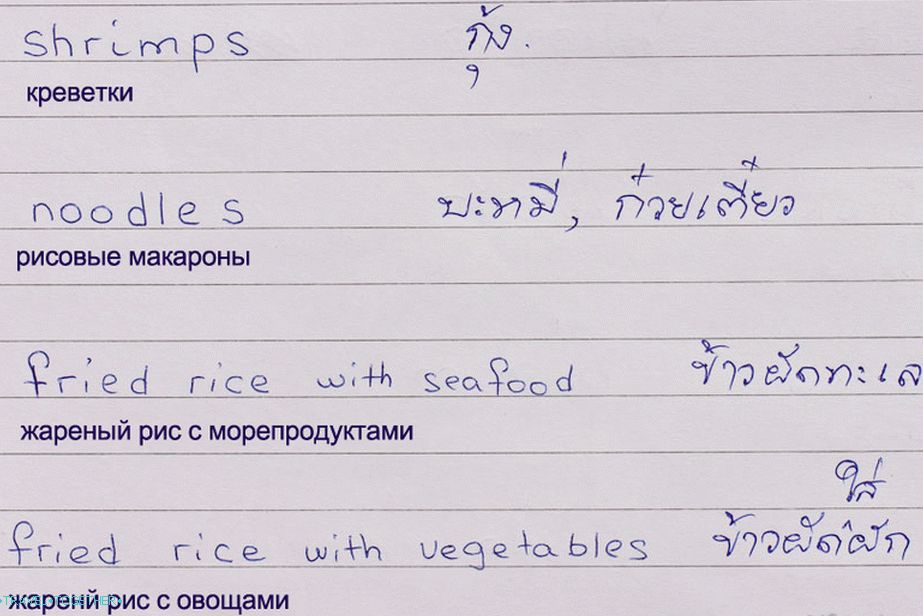 shrimps กุ้ง.
креветки
noodles บะหมี่, ก๋วยเตี๋ยว
рисовые макароны
fried rice with seafood ข้าวผัดทะเล
жареный рис с морепродуктами
ใส่
fried rice with vegetables ข้าวผัดผัก
жаренй рис с овощами